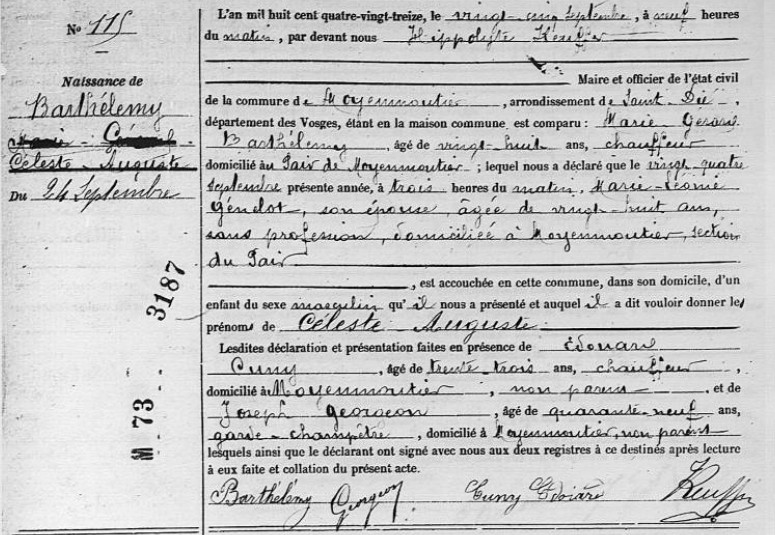 N° 115
Naissance de
Barthélemy
Marie - Gérard
Céleste - Auguste
Du 24 Septembre
3187
M 73
L'an mil huit cent quatre-vingt-treize, le vingt-cinq septembre, à neuf heures
du matin, par devant nous Hippolyte
Maire et officier de l'état civil
de la commune de Moyenmoutier, arrondissement de Saint-Dié,
département des Vosges, étant en la maison commune, est comparu : Marie-Gérard
Barthélemy âgé de vingt-huit ans, chauffeur
domicilié au Pair de Moyenmoutier ; lequel nous a déclaré que le vingt-quatre
septembre présente année, à trois heures du matin, Marie-Léonie
Génelot, son épouse, âgée de vingt-huit ans,
sans profession, domiciliée à Moyenmoutier, section
du Pair
, est accouchée en cette commune, dans son domicile, d'un
enfant du sexe masculin qu'il nous a présenté et auquel il a dit vouloir donner les
prénoms de Céleste - Auguste.
Lesdites déclaration et présentation faites en présence de Édouard
Cuny, âgé de trente-trois ans, chauffeur,
domicilié à Moyenmoutier, non parent, et de
Joseph Georgeon, âgé de quarante-neuf ans,
garde-champêtre, domicilié à Moyenmoutier, non parent
lesquels ainsi que le déclarant ont signé avec nous aux deux registres à ce destinés après lecture
à eux faite et collation du présent acte.
Barthélémy Georgeon Cuny Edouard